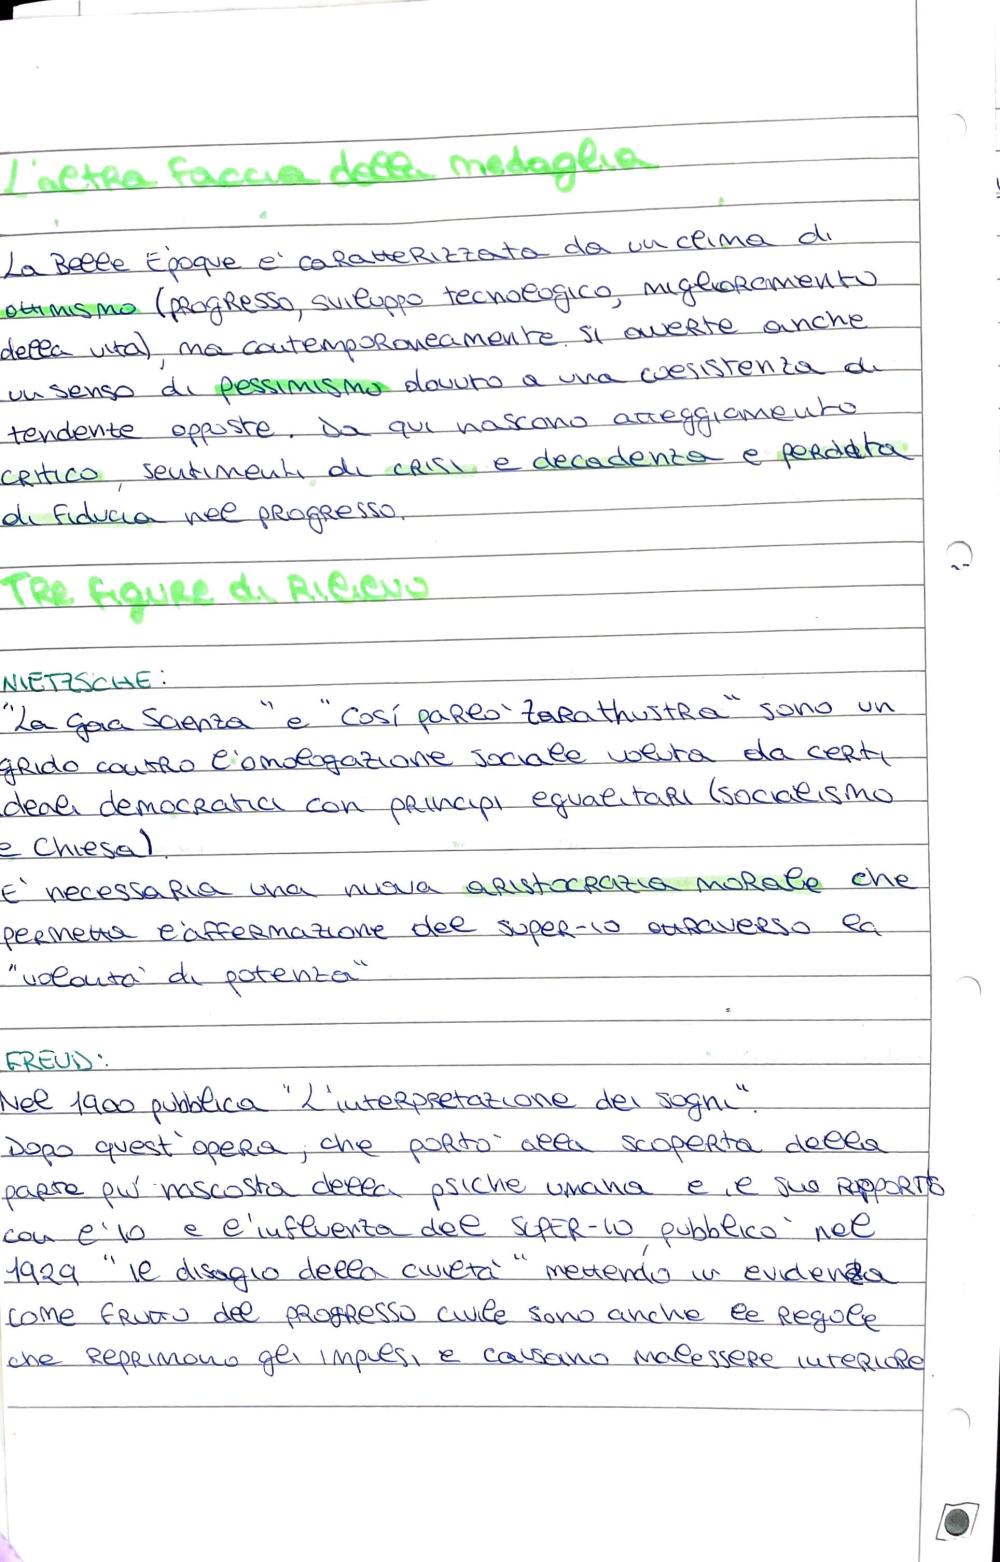 L'altra faccia della medaglia
La Belle Époque e' caratterizzata da un clima di
ottimismo (progresso, sviluppo tecnologico, miglioramento
della vita), ma contemporaneamente si avverte anche
un senso di pessimismo dovuto a una coesistenza di
tendente opposte. Da qui nascono atteggiamento
critico, sentimenti di crisi e decadenza e perdata
di fiducia nel progresso.
TRE figure di Rilievo
NIETZSCHE:
"La Gaia Scienza" e "Così parlò Zarathustra" sono un
grido contro l'omologazione sociale voluta da certi
ideali democratici con principi egualitari (socialismo
e Chiesa).
E' necessaria una nuova aristocrazia morale che
permetta l'affermazione del super-io attraverso la
"volontà di potenza"
FREUD:
Nel 1900 pubblica "L'interpretazione dei sogni".
Dopo quest'opera, che portò alla scoperta della
parte piu' nascosta della psiche umana e il suo rapporto
con l'io e l'influenza del SUPER-IO, pubblicò nel
1929 "il disagio della civiltà" mettendo in evidenza
come frutto del progresso civile sono anche le regole
che reprimono gli impulsi e causano malessere interiore.